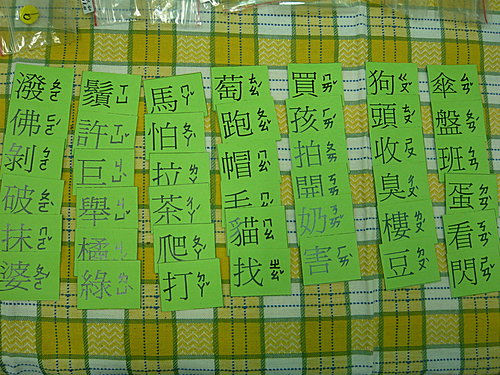 潑ㄆㄛ
佛ㄈㄛˊ
剝ㄅㄛ
破ㄆㄛˋ
抹ㄇㄛˇ
婆ㄆㄛˊ
鬚ㄒㄩ
許ㄒㄩˇ
巨ㄐㄩˋ
舉ㄐㄩˇ
橘ㄐㄩˊ
綠ㄌㄩˋ
馬ㄇㄚˇ
怕ㄆㄚˋ
拉ㄌㄚ
茶ㄔㄚˊ
爬ㄆㄚˊ
打ㄉㄚˇ
萄ㄊㄠˊ
跑ㄆㄠˇ
帽ㄇㄠˋ
毛ㄇㄠˊ
貓ㄇㄠ
找ㄓㄠˇ
買ㄇㄞˇ
孩ㄏㄞˊ
拍ㄆㄞ
開ㄎㄞ
奶ㄋㄞˇ
害ㄏㄞˋ
狗ㄍㄡˇ
頭ㄊㄡˊ
收ㄕㄡ
臭ㄔㄡˋ
樓ㄌㄡˊ
豆ㄉㄡˋ
傘ㄙㄢˇ
盤ㄆㄢˊ
班ㄅㄢ
蛋ㄉㄢˋ
看ㄎㄢˋ
閃ㄕㄢˇ